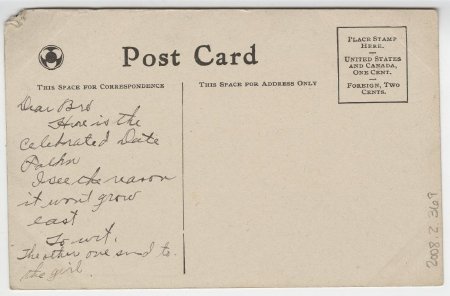 Post Card
THIS SPACE FOR CORRESPONDENCE
THIS SPACE FOR ADDRESS ONLY
PLACE STAMP
HERE.
UNITED STATES
AND CANADA,
ONE CENT.
FOREIGN, TWO
CENTS.
Dear Bro
Here is the
celebrated Date
Palm
I see the reason
it wont grow
east
To wit,
The other one send to
the girl.
2008.2.369